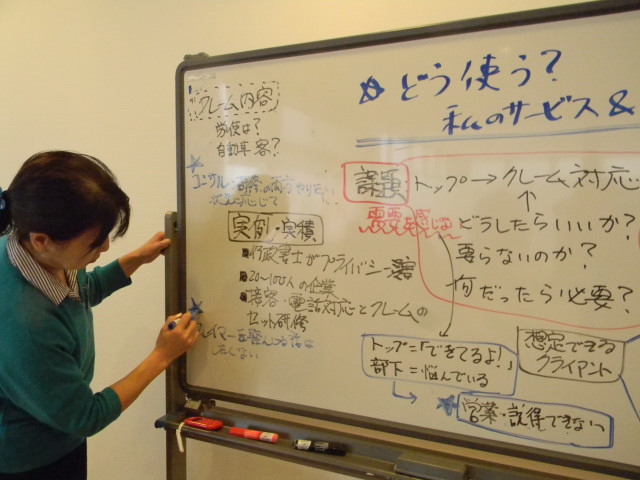 クレーム内容
労使は?
自動車 客?
コンサル・研修の両方やりたい
状況に応じて
実例・実積
■行政書士がプライバシー
■20〜100人の企業
■接客・電話対応とクレームの
セット研修
したくない
どう使う?
私のサービス &
課題 トップ→クレーム対応
↑
どうしたらいいか?
要らないのか?
何だったら必要?
トップ=「できてるよ!」
部下=悩んでいる
想定できる
クライアント
営業・説得できない